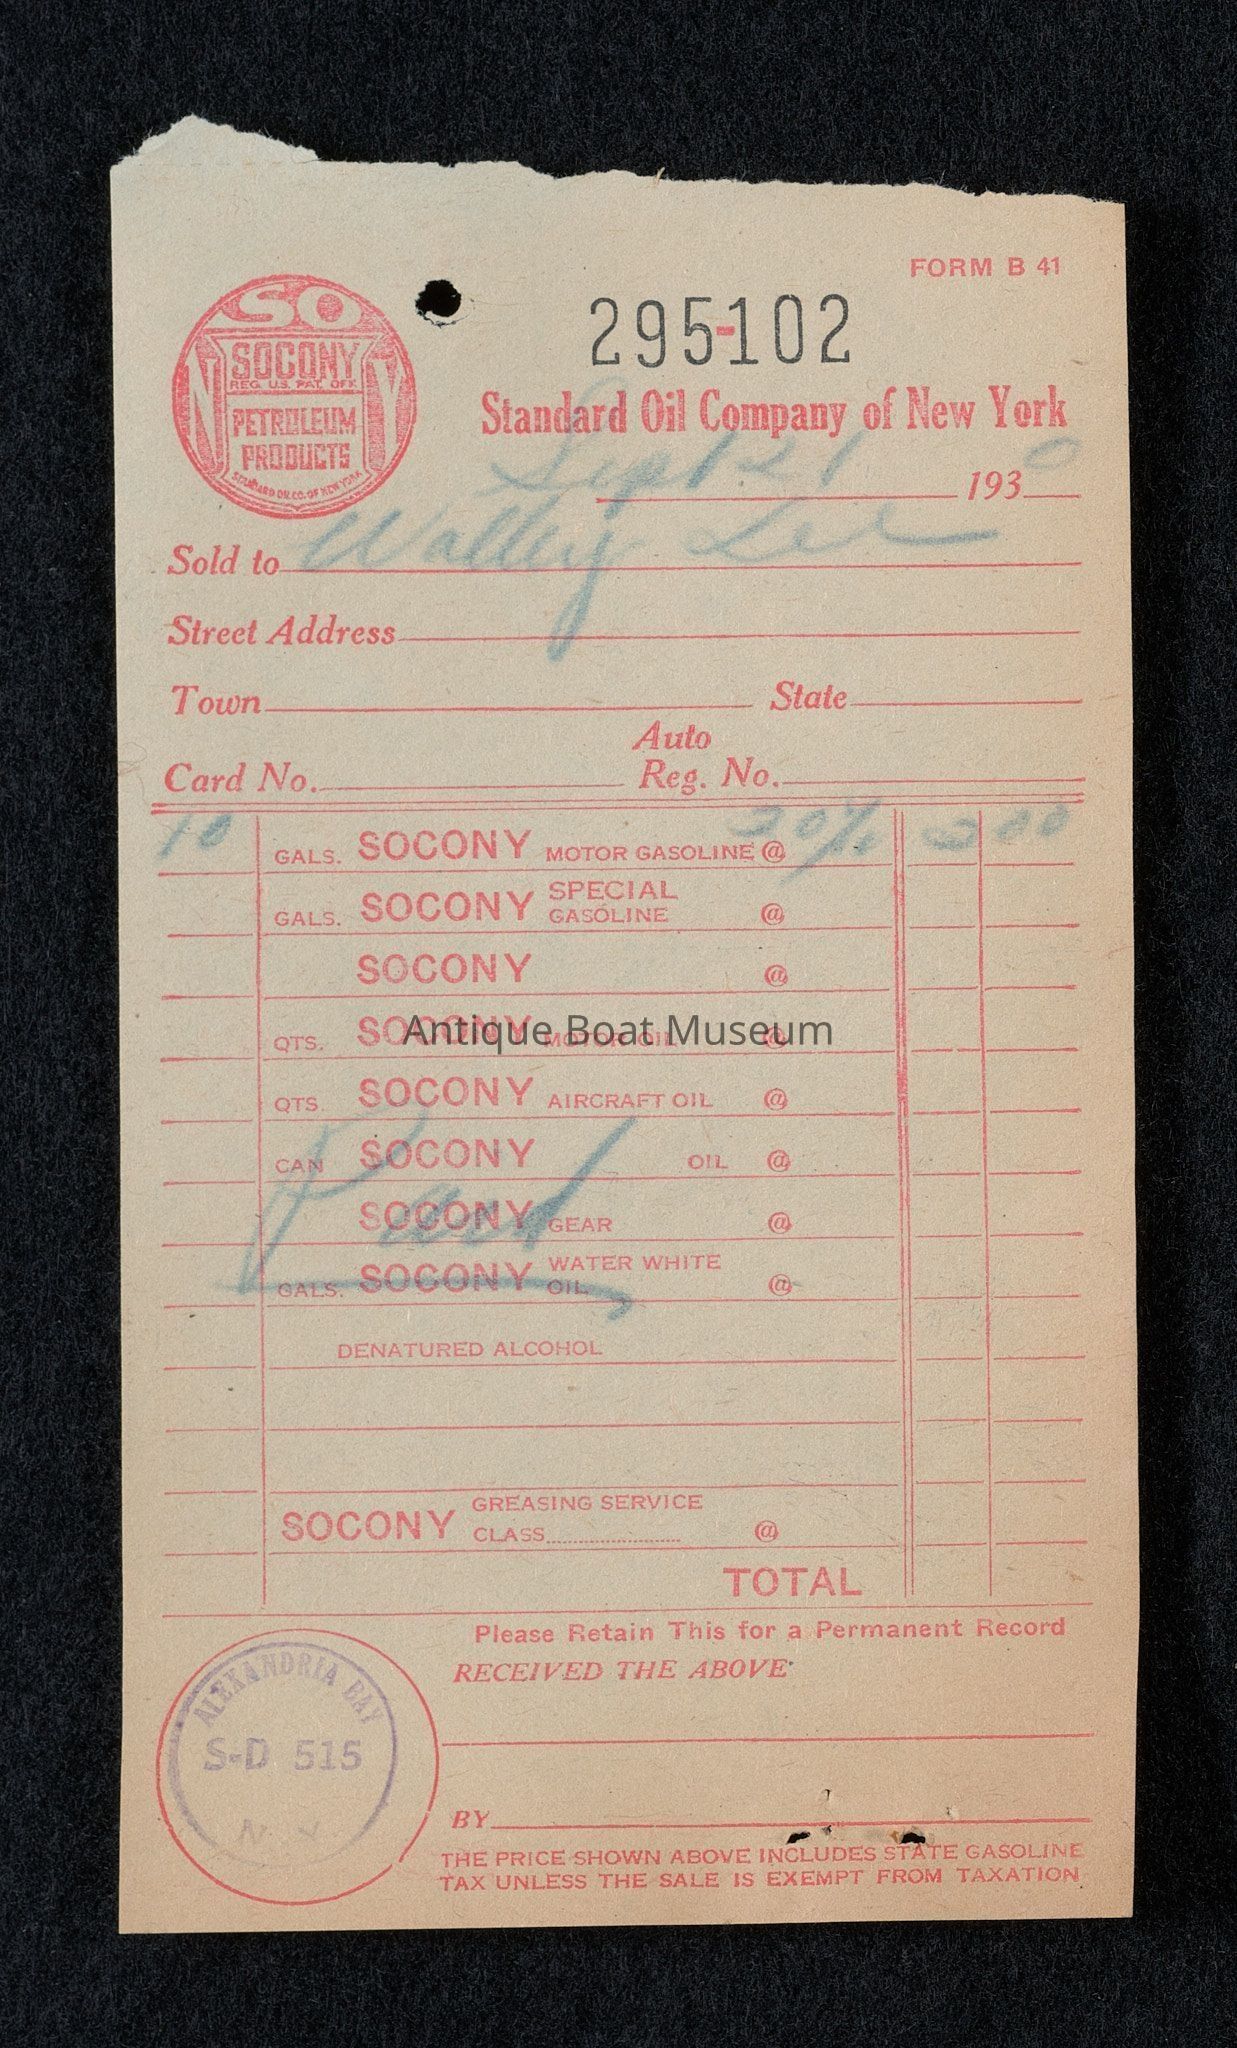 FORM B 41
295-102
SO
NY
SOCONY
REG. U.S. PAT. OFF.
PETROLEUM
PRODUCTS
STANDARD OIL CO. OF NEW YORK
Standard Oil Company of New York
Sept 21 1930
Sold to Walley Lee
Street Address
Town State
Auto
Card No. Reg. No.
10 GALS. SOCONY MOTOR GASOLINE @ 300
GALS. SOCONY SPECIAL GASOLINE @
SOCONY @
QTS. SOCONY MOTOR OIL @
Antique Boat Museum
QTS. SOCONY AIRCRAFT OIL @
CAN SOCONY OIL @
Paid
SOCONY GEAR @
GALS. SOCONY WATER WHITE OIL @
DENATURED ALCOHOL
SOCONY GREASING SERVICE CLASS @
TOTAL
Please Retain This for a Permanent Record
RECEIVED THE ABOVE
ALEXANDRIA BAY
S-D 515
N.Y.
BY
THE PRICE SHOWN ABOVE INCLUDES STATE GASOLINE
TAX UNLESS THE SALE IS EXEMPT FROM TAXATION